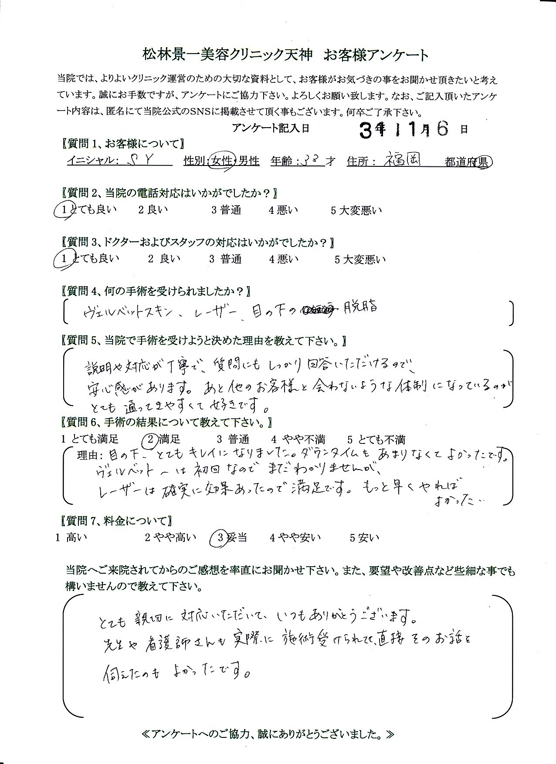 松林景一美容クリニック天神 お客様アンケート
当院では、よりよいクリニック運営のための大切な資料として、お客様がお気づきの事をお聞かせ頂きたいと考え
ています。誠にお手数ですが、アンケートにご協力下さい。よろしくお願い致します。なお、ご記入頂いたアンケ
ート内容は、匿名にて当院公式のSNSに掲載させて頂く事もございます。何卒ご了承下さい。
アンケート記入日 3年11月6日
【質問1、お客様について】
イニシャル: S Y 性別:女性・男性 年齢:38才 住所: 福岡 都道府県
【質問2、当院の電話対応はいかがでしたか?】
1 とても良い 2 良い 3 普通 4 悪い 5 大変悪い
【質問3、ドクターおよびスタッフの対応はいかがでしたか?】
1 とても良い 2 良い 3 普通 4 悪い 5 大変悪い
【質問4、何の手術を受けられましたか?】
ヴェルベットスキン、レーザー、目の下の 脱脂
【質問5、当院で手術を受けようと決めた理由を教えて下さい。】
説明や対応が丁寧で、質問にもしっかり回答いただけるので、
安心感があります。あと他のお客様と会わないような体制になっているのが
とても通ってきやすくて好きです。
【質問6、手術の結果について教えて下さい。】
1 とても満足 2 満足 3 普通 4 やや不満 5 とても不満
理由: 目の下〜とてもキレイになりました。ダウンタイムもあまりなくてよかったです。
ヴェルベット〜は初回なのでまだわかりませんが、
レーザーは確実に効果あったので満足です。もっと早くやれば
よかった…
【質問7、料金について】
1 高い 2 やや高い 3 妥当 4 やや安い 5 安い
当院へご来院されてからのご感想を率直にお聞かせ下さい。また、要望や改善点など些細な事でも
構いませんので教えて下さい。
とても親切に対応いただいて、いつもありがとうございます。
先生や看護師さんも実際に施術受けられてて、直接そのお話を
伺えたのもよかったです。
≪アンケートへのご協力、誠にありがとうございました。≫